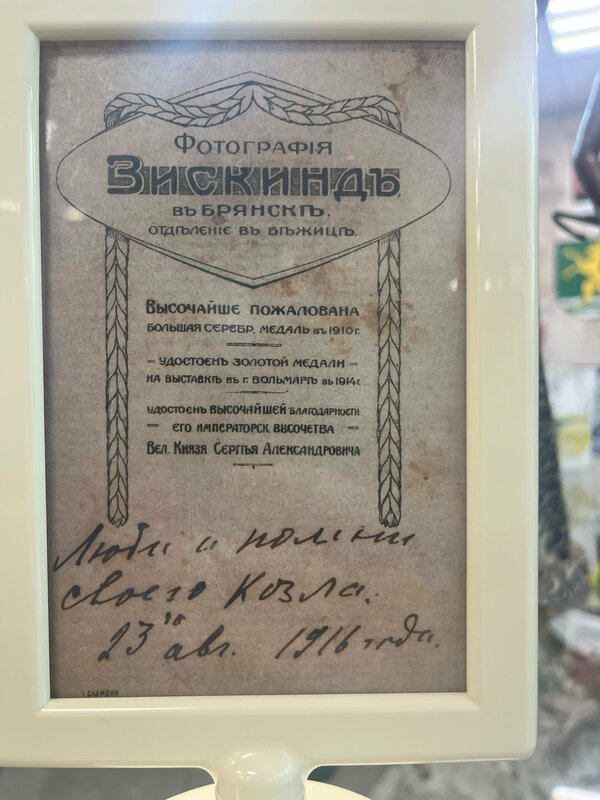 Фотографія
Зискиндъ
въ Брянскѣ.
отдѣленіе въ Бѣжицѣ.
Высочайше пожалована
большая серебр. медаль въ 1910 г.
удостоенъ золотой медали
на выставкѣ въ г. Вольмарѣ въ 1914 г.
удостоенъ высочайшей благодарности
его императорск. высочетва
Вел. Князя Сергѣя Александровича
Люби и помни
своего Козла.
23го авг. 1916 года.